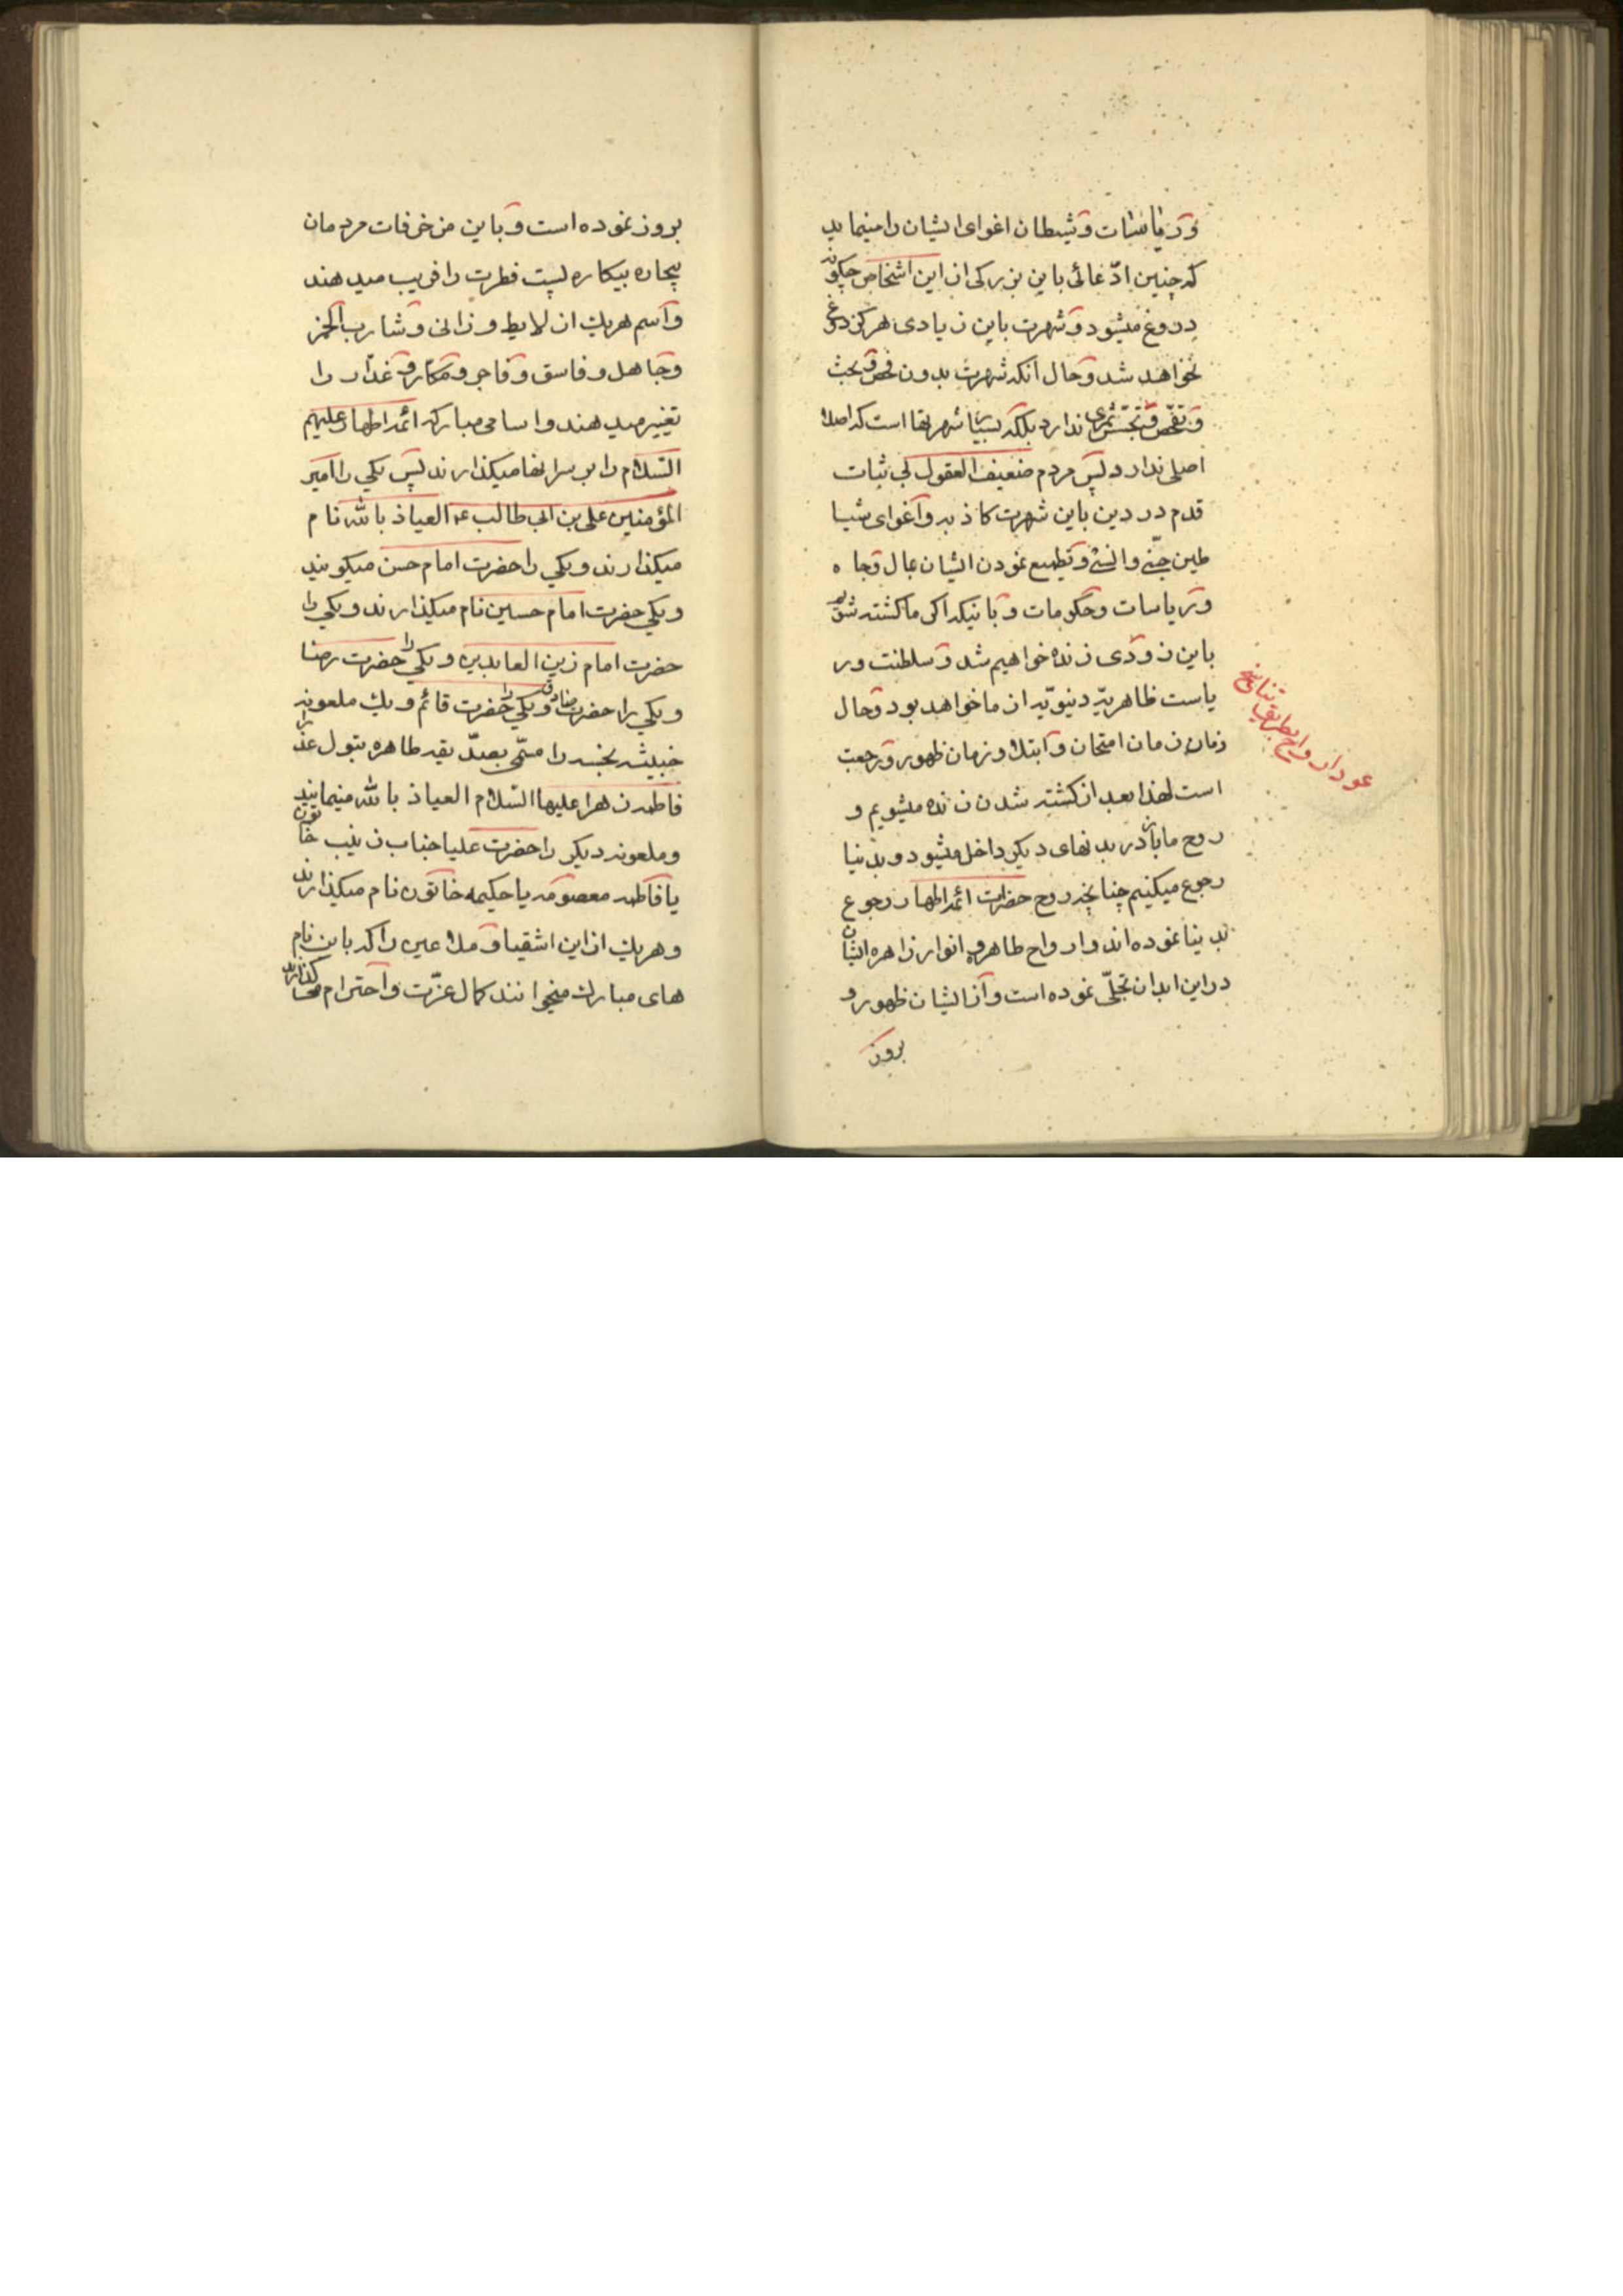 و ریاسات و شیطان اغوای ایشان را مینماید
که چنین ادّعائی باین بزرکی از این اشخاص چکونه
دروغ میشود و شهرت باین زیادی هرکز دروغ
نخواهد شد و حال آنکه شهرت بدون فحص و بحث
و تفحّص و تجسّس ثمری ندارد بلکه بسیار شهرتها است که اصلا
اصلی ندارد پس مردم ضعیف العقول بی ثبات
قدم در دین باین شهرت کاذبه و اغوای شیا
طین جنّی و انسی و تطمیع نمودن ایشان بمال و جاه
و ریاسات و حکومات و باینکه اکر ما کشته شویم
باین زودی زنده خواهیم شد و سلطنت و ر
یاست ظاهریّه دنیویّه از ما خواهد بود و حال
زمان زمان امتحان و ابتلا و زمان ظهور و رجعت
است لهذا بعد از کشته شدن زنده میشویم و
روح ما باز در بدنهای دیکر داخل میشود و بدنیا
رجوع میکنیم چنانچه روح حضرات ائمه اطهار رجوع
بدنیا نموده اند و ارواح طاهره و انوار زاهره ایشان
در این ابدان تجلّی نموده است و از ایشان ظهور و
بروز
عود ارواح بطریق تناسخ
بروز نموده است و باین مزخرفات مردمان
بیچاره بیکاره پست فطرت را فریب میدهند
و اسم هریک از لایط و زانی و شارب الخمر
و جاهل و فاسق و فاجر و مکّار و غدّار را
تغییر میدهند و اسامی مبارکه ائمه اطهار علیهم
السّلام را بر سر آنها میکذارند پس یکی را امیر
المؤمنین علی بن ابی طالب ع العیاذ بالله نام
میکذارند و یکی را حضرت امام حسن میکویند
و یکی حضرت امام حسین نام میکذارند و یکی را
حضرت امام زین العابدین و یکی را حضرت رضا
و یکی را حضرت صادق و یکی را حضرت قائم و یک ملعونه
خبیثه نجسه را مسمّی بصدّیقه طاهره بتول عذرا
فاطمه زهرا علیها السّلام العیاذ بالله مینمایند
و ملعونه دیکر را حضرت علیا جناب زینب خاتون
یا فاطمه معصومه یا حکیمه خاتون نام میکذارند
و هریک از این اشقیا و ملاعین را که باین نام
های مبارک میخوانند کمال عزّت و احترام